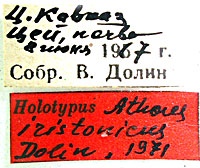 Ц. Кавказ
Цей,
8 июня 1967 г.
Собр. В. Долин
Holotypus Athous
iristonicus
Dolin, 1971